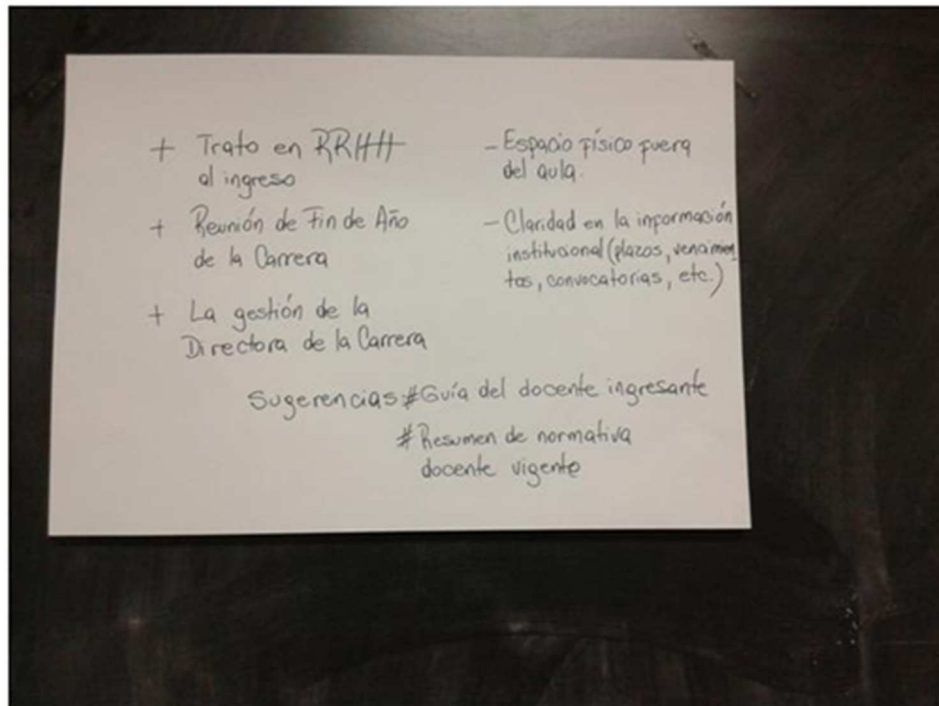 + Trato en RRHH
al ingreso
+ Reunión de Fin de Año
de la Carrera
+ La gestión de la
Directora de la Carrera
- Espacio físico fuera
del aula.
- Claridad en la información
institucional (plazos, vencimien
tos, convocatorias, etc.)
Sugerencias: #Guía del docente ingresante
# Resumen de normativa
docente vigente